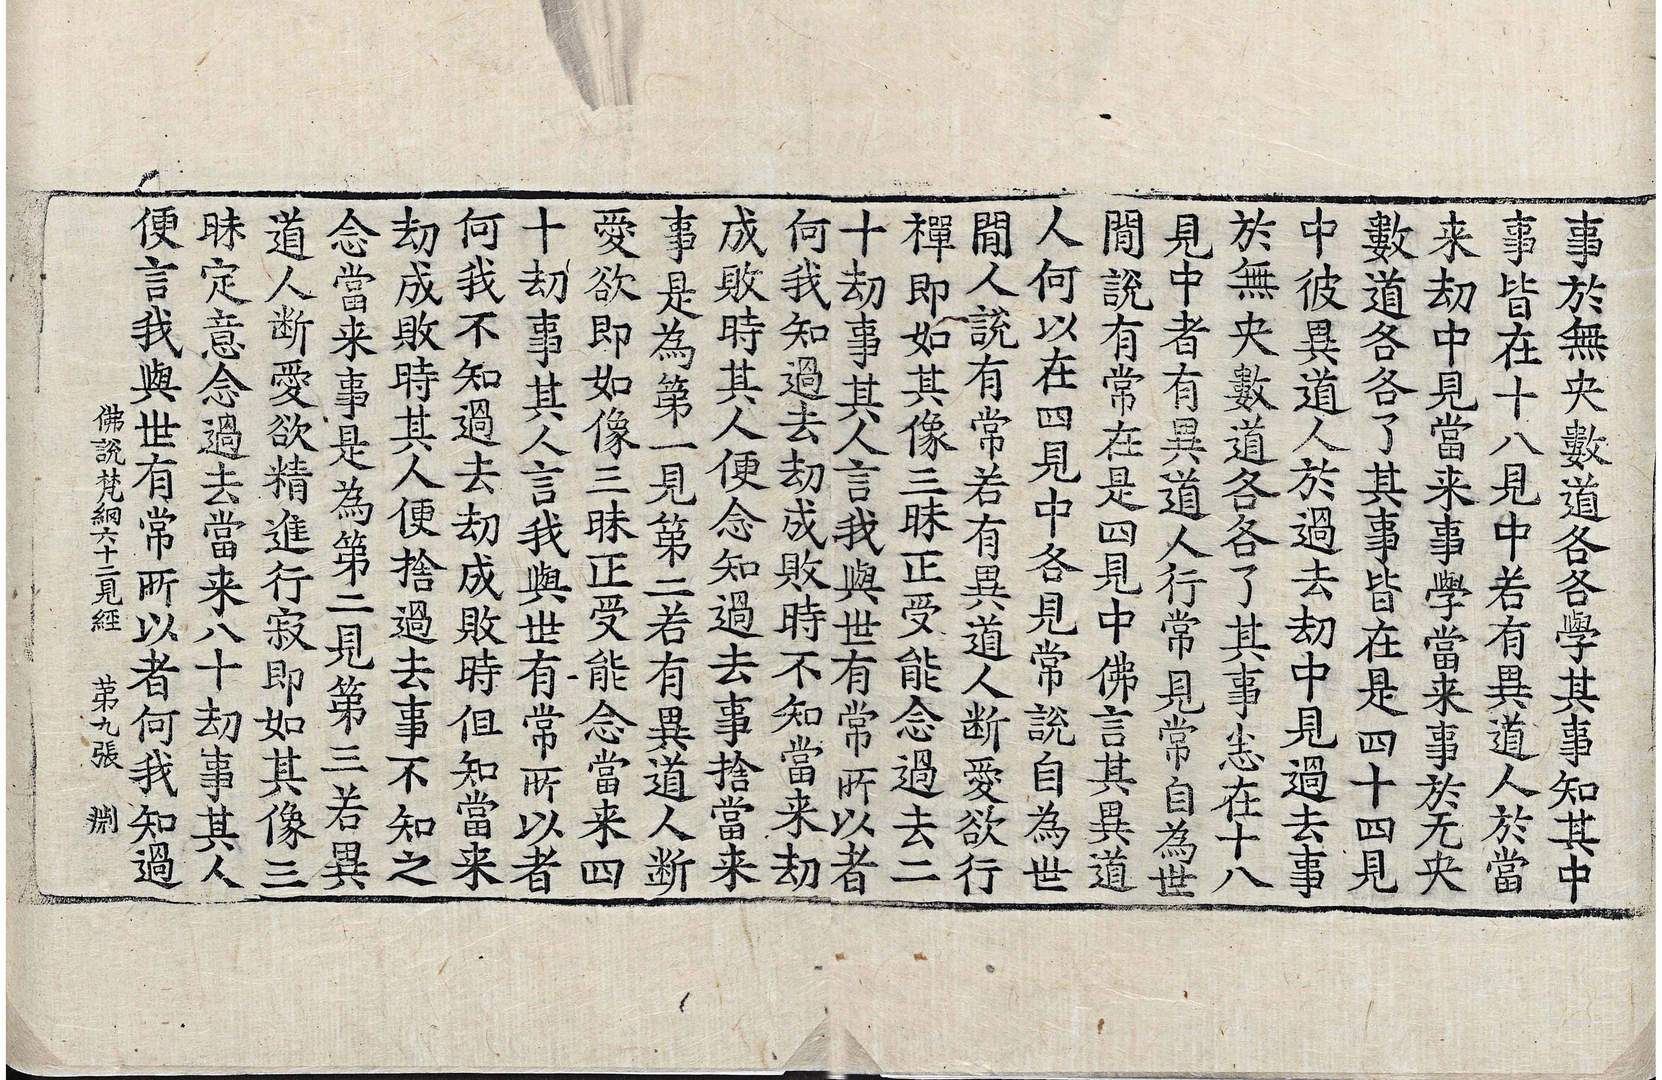 事於無央數道各各學其事知其中
事皆在十八見中若有異道人於當
来劫中見當来事學當来事於无央
數道各各了其事皆在是四十四見
中彼異道人於過去劫中見過去事
於無央數道各各了其事悉在十八
見中者有異道人行常見常自為世
間說有常在是四見中佛言其異道
人何以在四見中各見常說自為世
間人說有常若有異道人断愛欲行
禪即如其像三昧正受能念過去二
十劫事其人言我與世有常所以者
何我知過去劫成敗時不知當来劫
成敗時其人便念知過去事捨當来
事是為第一見第二若有異道人断
愛欲即如像三昧正受能念當来四
十劫事其人言我與世有常所以者
何我不知過去劫成敗時但知當来
劫成敗時其人便捨過去事不知之
念當来事是為第二見第三若異
道人断愛欲精進行寂即如其像三
昧定意念過去當来八十劫事其人
便言我與世有常所以者何我知過
佛說梵網六十二見經 苐九張 渊